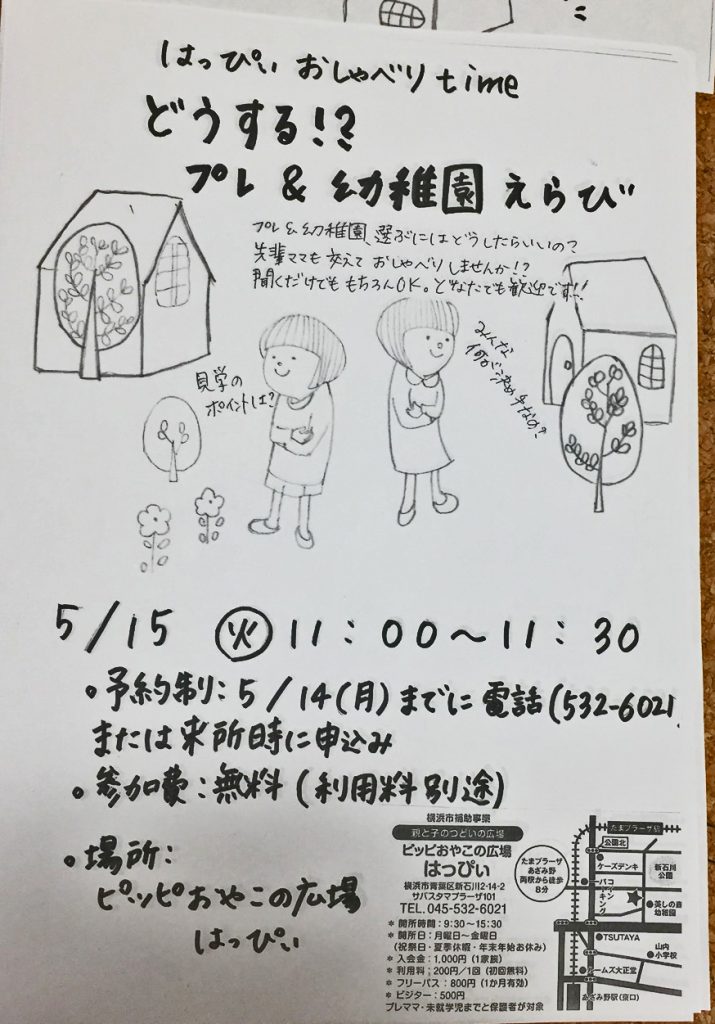 はっぴぃ おしゃべり time
どうする!?
プレ & 幼稚園 えらび
プレ&幼稚園、選ぶにはどうしたらいいの?
先輩ママも交えて おしゃべりしませんか!?
聞くだけでももちろんOK。どなたでも歓迎です!!
見学の
ポイントは?
みんな
何が決め手なの?
5/15 ㊋ 11:00〜11:30
・予約制:5/14(月)までに電話(532-6021
または来所時に申込み
・参加費:無料(利用料別途)
・場所:
ピッピおやこの広場
はっぴぃ
横浜市補助事業
親と子のつどいの広場
ピッピおやこの広場
はっぴぃ
横浜市青葉区新石川2-14-2
サバスタマプラーザ101
TEL.045-532-6021
* 開所時間:9:30〜15:30
* 開所日:月曜日〜金曜日
(祝祭日・夏季休暇・年末年始お休み)
* 入会金:1,000円(1家族)
* 利用料:200円/1回(初回無料)
* フリーパス:800円(1か月有効)
* ビジター:500円
プレママ・未就学児までと保護者が対象
たまプラーザ
あざみ野
両駅から徒歩
8分
たまプラーザ駅
公園北
ケーズデンキ
新石川
公園
パーキング
美しの森
幼稚園
TSUTAYA
山内
小学校
アームズ大正堂
あざみ野駅(東口)